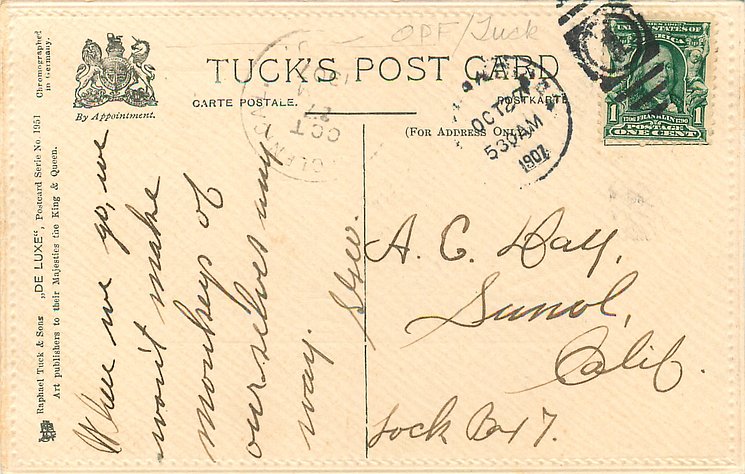 OPF/Tuck
TUCK'S POST CARD
By Appointment.
CARTE POSTALE.
POSTKARTE
(For Address Only)
Chromographed
in Germany.
Raphael Tuck & Sons „DE LUXE", Postcard Serie No 1951
Art publishers to their Majesties the King & Queen.
OCT
27
OCT 28
530AM
1907
UNITED STATES OF
AMERICA
1706 FRANKLIN 1790
1 POSTAGE 1
ONE CENT
When we go, we
won't make
monkeys of
ourselves any
way.
A. C. Day,
Sunol,
Calif.
Lock Box 7.